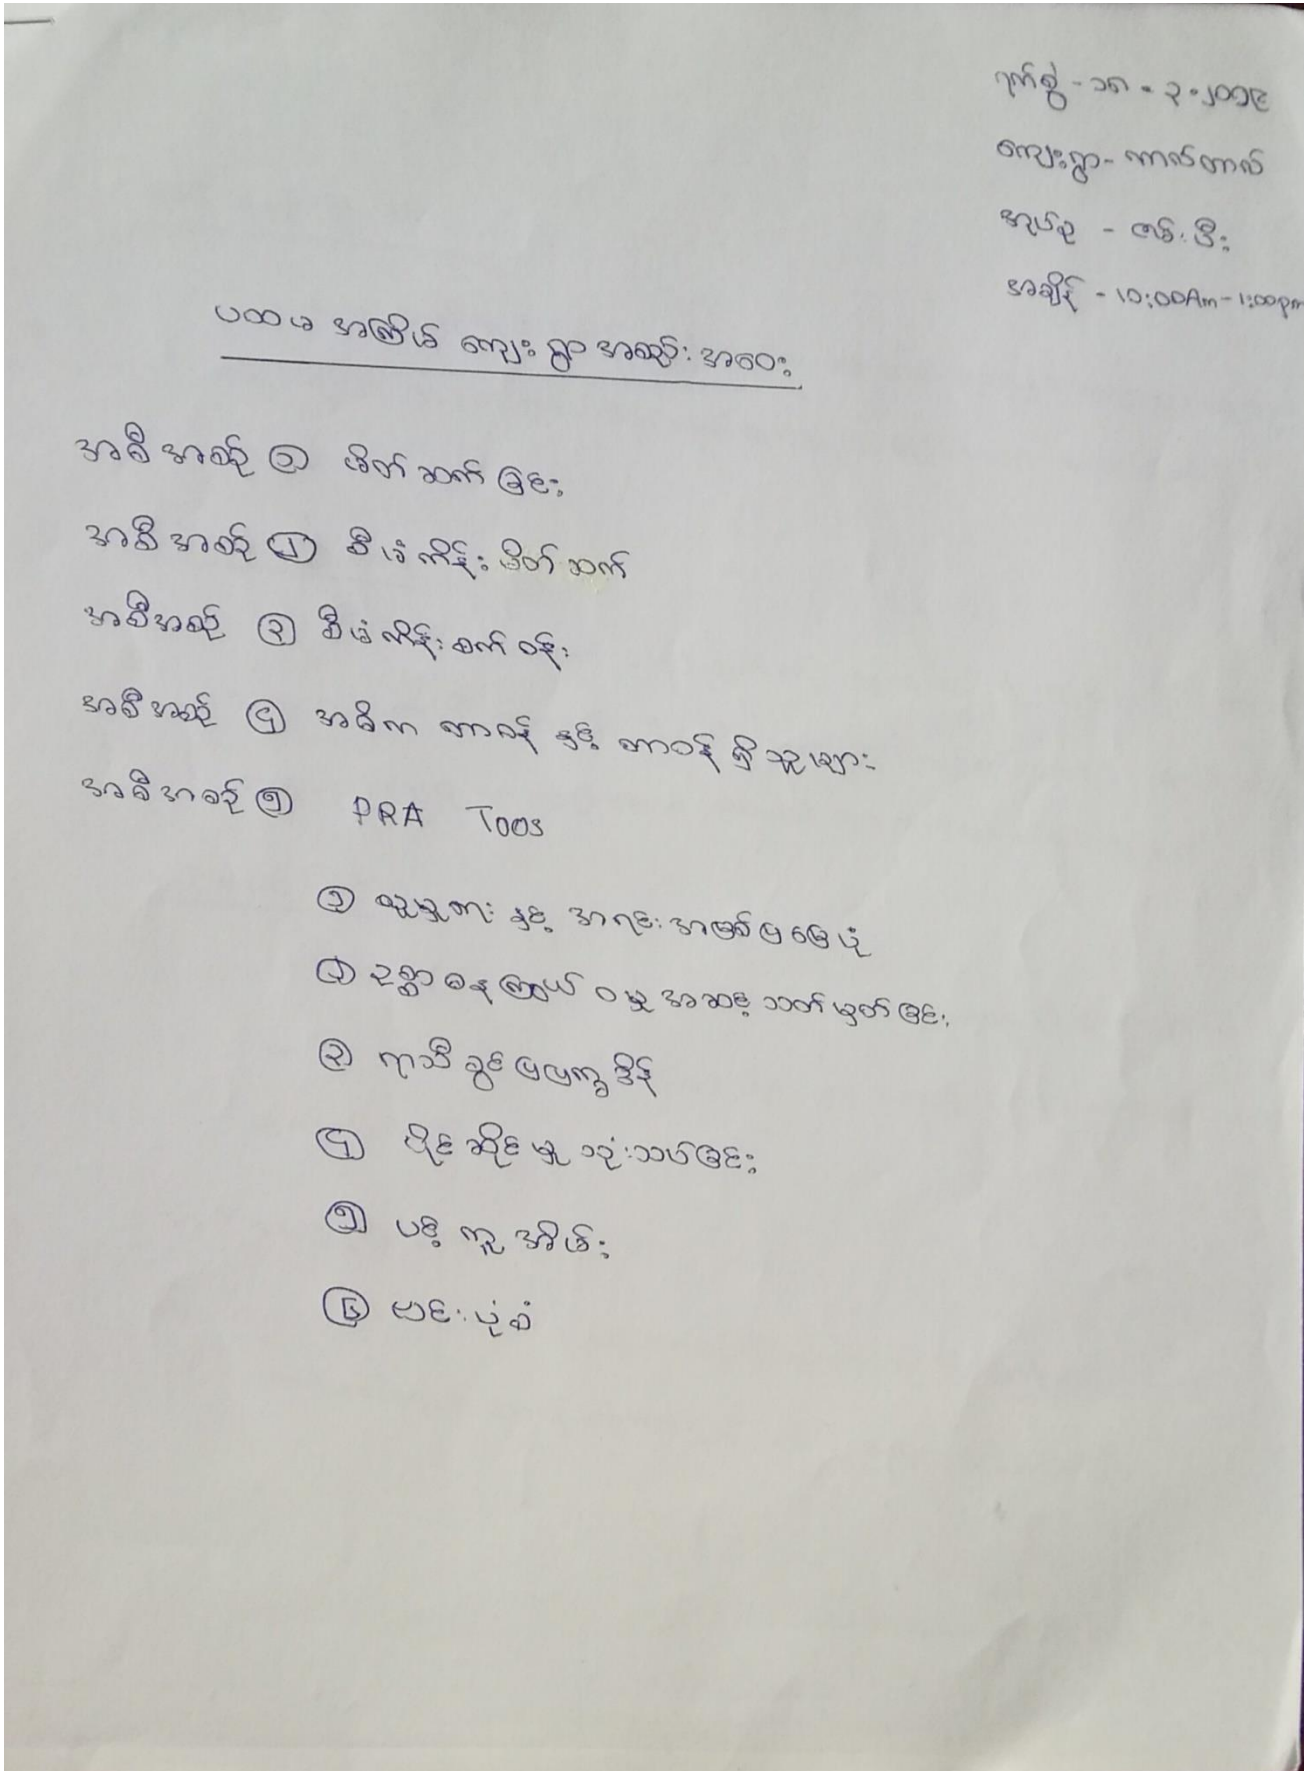 ရက်စွဲ - ၁၈ - ၃ - ၂၀၁၉
ကျေးရွာ - ကာလ်တာလ်
အုပ်စု -
အချိန် - 10:00Am - 1:00pm
ပထမ အကြိမ် ကျေးရွာ အစည်းအဝေး
အစီအစဉ် ၁ မိတ်ဆက်ခြင်း
အစီအစဉ် ၂ စီမံကိန်း မိတ်ဆက်
အစီအစဉ် ၃ စီမံကိန်း စက်ဝန်း
အစီအစဉ် ၄ အဓိက တာဝန် နှင့် တာဝန်ရှိသူများ
အစီအစဉ် ၅ PRA Toos
၁ လူမှုရေး နှင့် အရင်းအမြစ်ပြ မြေပုံ
၂ ဥစ္စာဓန ကြွယ်ဝမှု အဆင့်သတ်မှတ်ခြင်း
၃ ရာသီခွင်ပြပြက္ခဒိန်
၄ ပိုင်ဆိုင်မှု သုံးသပ်ခြင်း
၅ ပင့်ကူအိမ်
၆ ဗင်းပုံစံ